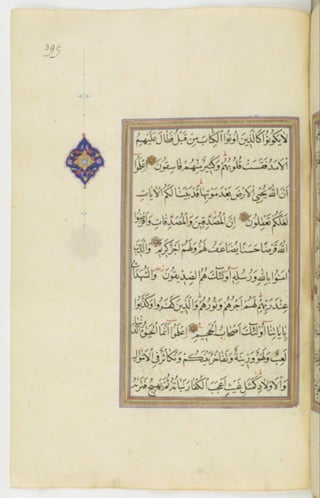 395
لا يكونوا كالذين اوتوا الكتاب من قبل فطال عليهم
الامد فقست قلوبهم وكثير منهم فاسقون اعلموا
ان الله يحيي الارض بعد موتها قد بينا لكم الايات
لعلكم تعقلون ان المصدقين والمصدقات واقرضوا
الله قرضا حسنا يضاعف لهم ولهم اجر كريم والذين
امنوا بالله ورسله اولئك هم الصديقون والشهداء
عند ربهم لهم اجرهم ونورهم والذين كفروا وكذبوا
باياتنا اولئك اصحاب الجحيم اعلموا انما الحيوة الدنيا
لعب ولهو وزينة وتفاخر بينكم وتكاثر في الاموال
والاولاد كمثل غيث اعجب الكفار نباته ثم يهيج فتريه